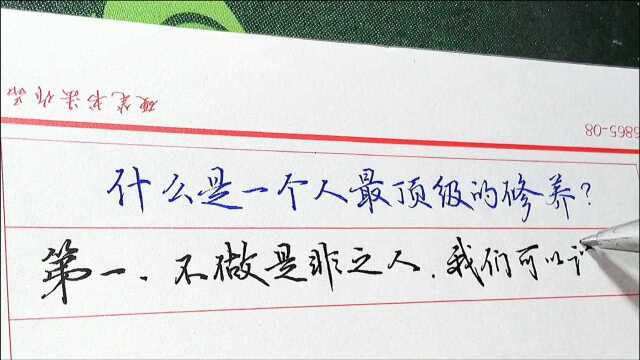 硬笔书法作品
5865-08
什么是一个人最顶级的修养?
第一、不做是非之人,我们可以